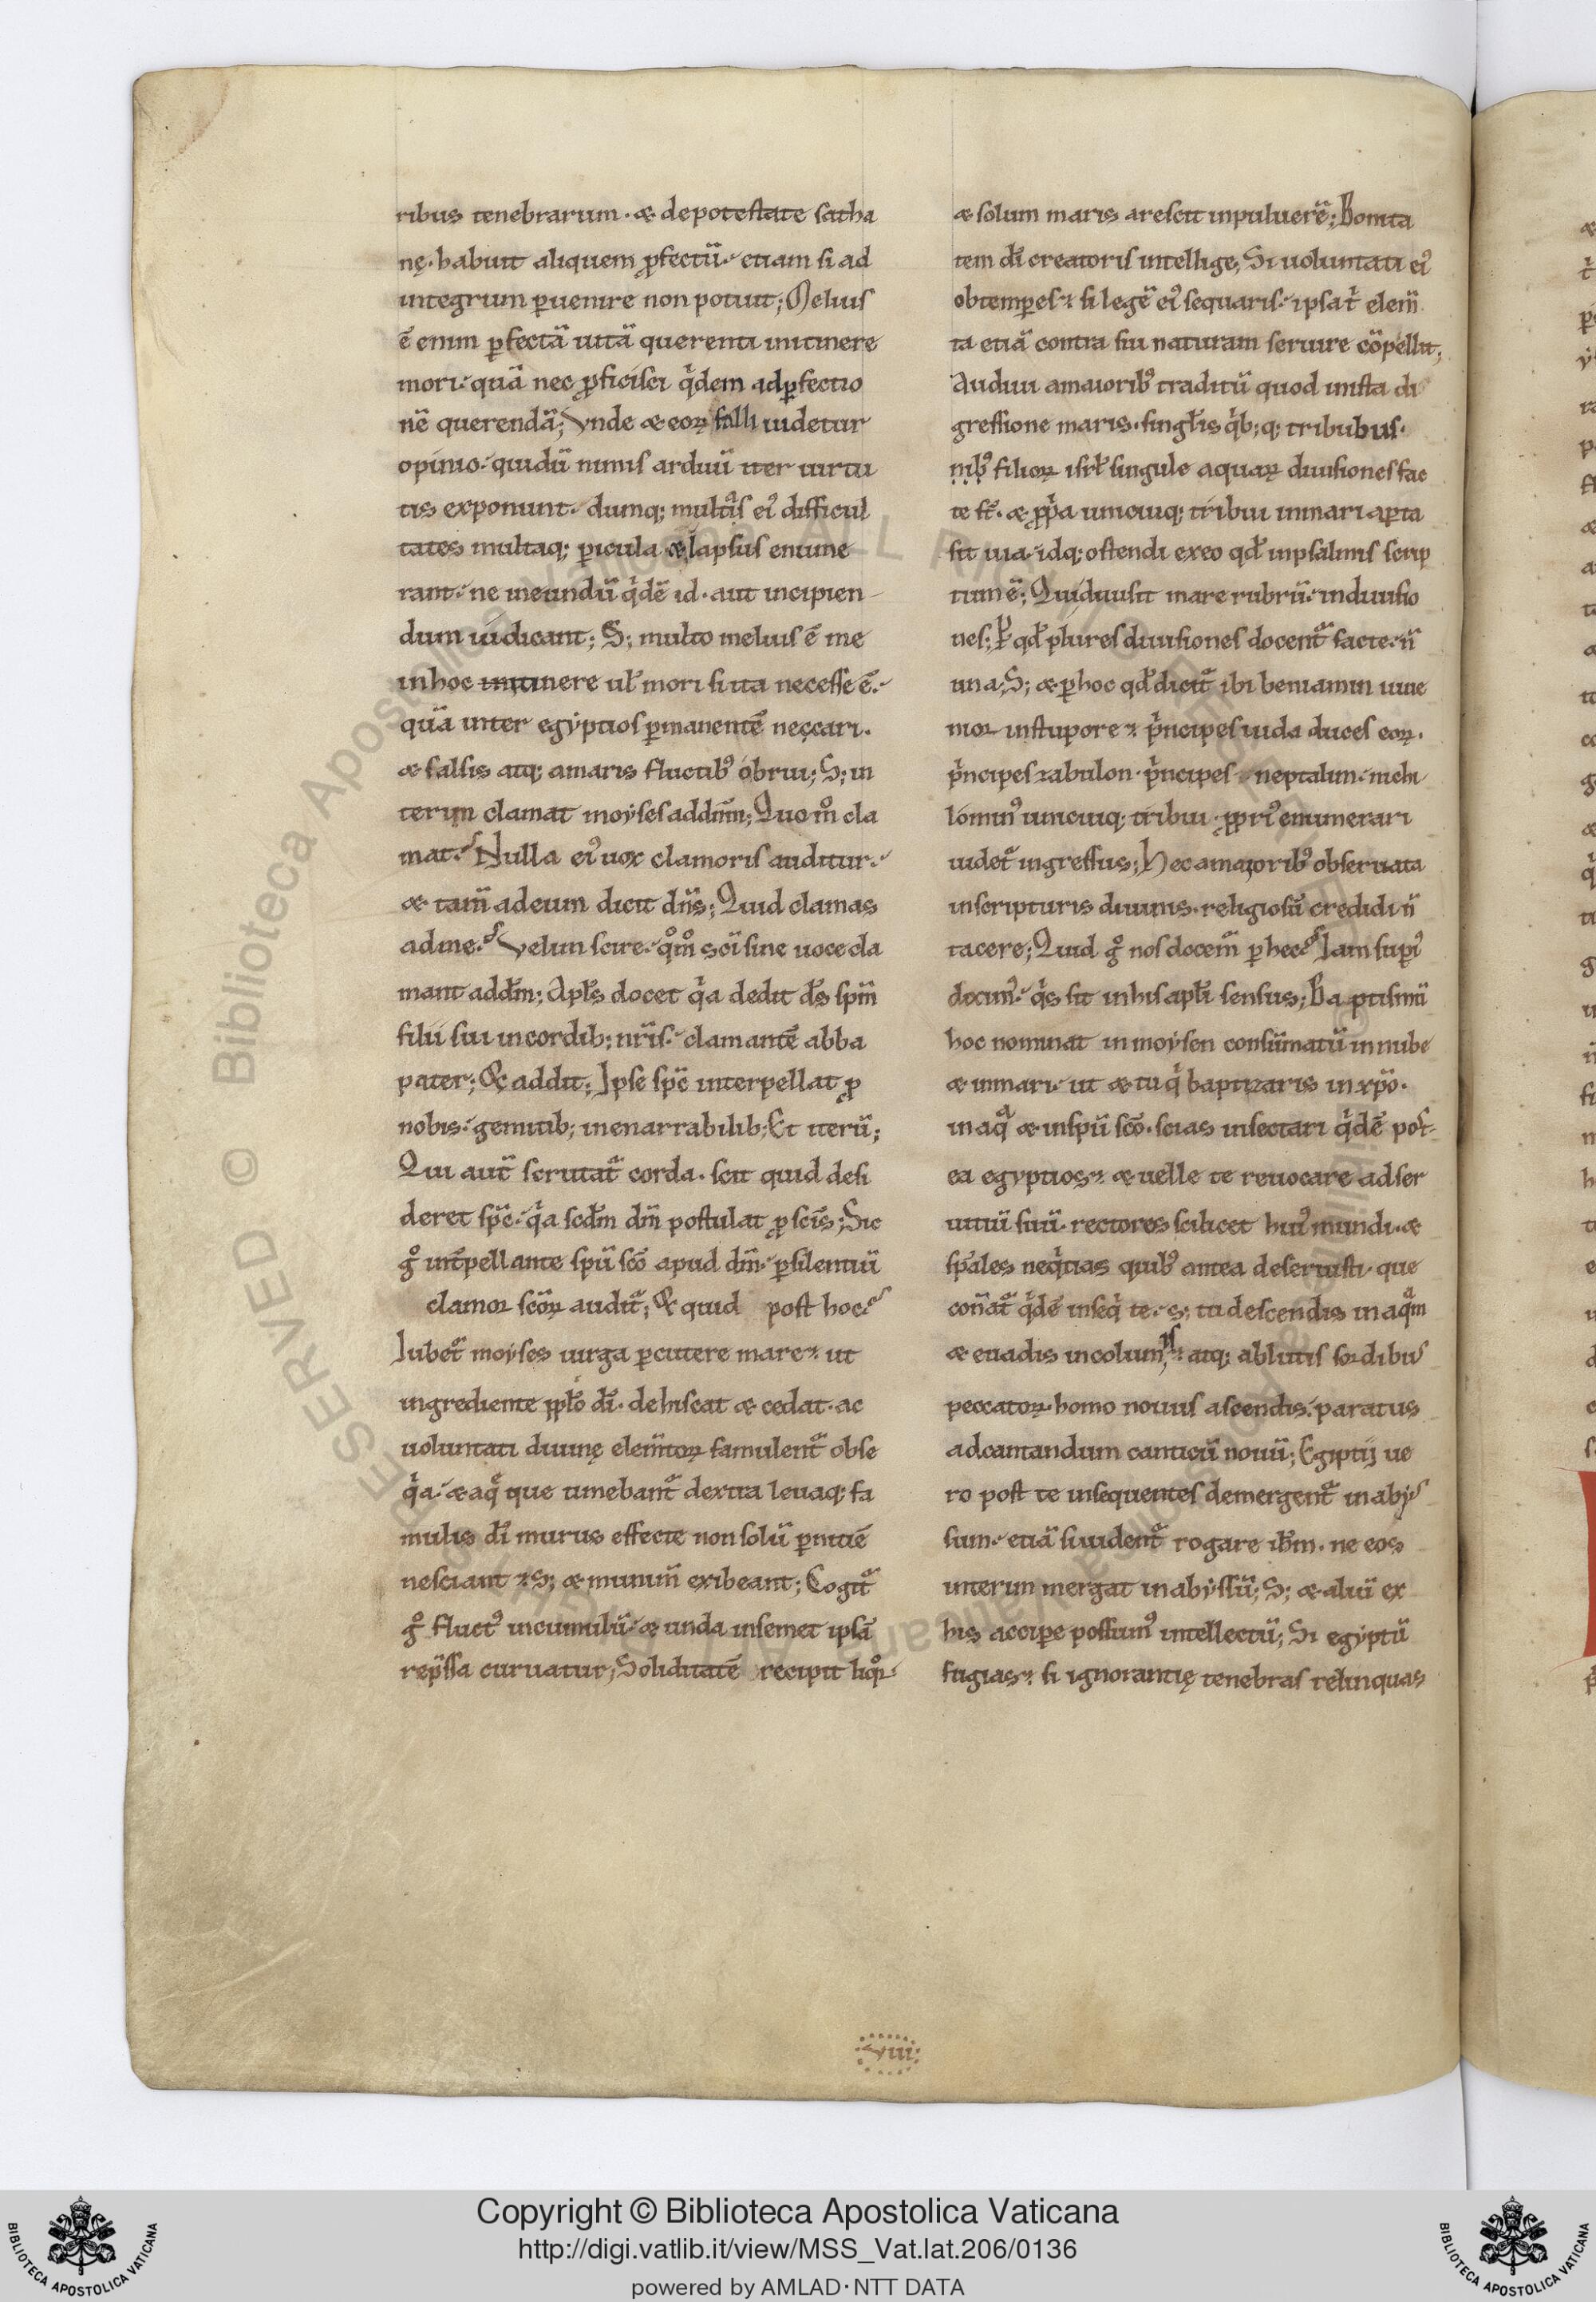 ribus tenebrarum · & de potestate satha
nę · habuit aliquem ꝓfectū · etiam si ad
integrum ꝑuenire non potuit ; Melius
ē enim ꝑfectā uitā querenti initinere
mori · quā nec ꝓficisci qͥdem adꝑfectio
nē querendā ; Vnde & eoꝝ falli uidetur
opinio · quidū nimis arduū iter uirtu
tis exponunt · dumq; multis eiꝰ difficul
tates multaq; ꝑicula & lapsus enume
rant · ne ineundū qͥdē id · aut incipien
dum iudicant ; S; multo melius ē me
inhoc itinere ul̄ mori si ita necesse ē ·
quā inter egyptios ꝑmanentē neccari ·
& salsis atq; amaris fluctibꝰ obrui ; S; in
terim clamat moyses addn̄m ; Quo m̊ cla
mat · Nulla eiꝰ uox clamoris auditur ·
& tam̄ adeum dicit dn̄s ; Quid clamas
adme · Velim scire · qm̊ sc̄i sine uoce cla
mant add̄m ; Apl̄s docet qͥa dedit d̄s sp̄m
filii sui incordib; nr̄is · clamantē abba
pater ; & addit ; Ipse sp̄c interpellat ꝓ
nobis · gemitib; inenarrabilib; Et iterū ;
Qui aut̄ scrutat᷑ corda · scit quid desi
deret sp̄c · qͥa scd̄m dm̄ postulat ꝓ sc̄is ; Sic
g̊ int̄pellante spū sc̄o apud dm̄ · ꝑsilentiū
clamor sc̄oꝝ audit᷑ ; & quid post hoc
Iubet᷑ moyses uirga ꝑcutere mare · ut
ingrediente ppl̄o dī · dehiscat & cedat · ac
uoluntati diuinę elem̄toꝝ famulent᷑ obse
qͥa · & aq̄ que timebant᷑ dextra leuaq; fa
mulis dī murus effecte non solū ꝑnitiē
nesciant · S; & munim̄ exibeant ; Cogit᷑
g̊ fluctꝰ incumulū · & unda insemet ipsā
rep̄ssa curuatur ; Soliditatē recipit liq̊r
& solum maris arescit inpuluerē ; Bonita
tem dī creatoris intellige ; Si uoluntati eiꝰ
obtemꝑes · si legē eiꝰ sequaris · ipsa tͥ elem̄
ta etiā contra sui naturam seruire cōpellit ;
Audiui amaioribꝰ traditū quod inista di
gressione maris · singl̄is qͥb;q; tribubus ·
nibꝰ filioꝝ isrl̄ singule aquaꝝ diuisiones fac
te st̄ · & ꝓpͥa unicuiq; tribui inmari aꝑta
sit uia · idq; ostendi exeo qd̄ inpsalmis scrip
tum ē ; Quidiuisit mare rubrū · indiuisio
nes ; Ꝑ qd̄ plures diuisiones docent᷑ facte · n̄
una ; S; & ꝑ hoc qd̄ dicit᷑ ibi beniamin iuue
nior instupore · pͥncipes iuda duces eoꝝ ·
pͥncipes zabulon · pͥncipes neptalim · nichi
lominꝰ unicuiq; tribui ꝓpriꝰ enumerari
uidet᷑ ingressus ; Hec amaioribꝰ obseruata
inscripturis diuinis · religiosū credidi n̄
tacere ; Quid g̊ nos docem᷑ ꝑ hec Iam supꝰi
diximꝰ · qͥs sit inhis apl̄i sensus ; Baptismū
hoc nominat inmoysen consūmatū innube
& inmari · ut & tu qͥ baptizaris inxp̄o ·
inaqᷓ & inspū sc̄o · scias insectari qͥdē post
ea egyptios · & uelle te reuocare adser
uitiū suū · rectores scilicet huiꝰ mundi · &
sp̄ales neqͥtias quibꝰ antea deseruisti · que
con̄at᷑ qͥdē inseqͥ te · s; tu descendis inaqᷓm
& euadis incolumis · atq; ablutis sordibus
peccatoꝝ · homo nouus ascendis · paratus
adcantandum canticū nouū ; Egiptij ue
ro post te insequentes demergent᷑ inabys
sum · etiā si uident᷑ rogare ih̄m · ne eos
interim mergat inabyssū ; S; & aliū ex
his accipe possumꝰ intellectū ; Si egyptū
fugias · si ignorantię tenebras relinquas
viii
Copyright © Biblioteca Apostolica Vaticana
http://digi.vatlib.it/view/MSS_Vat.lat.206/0136
powered by AMLAD·NTT DATA
BIBLIOTECA APOSTOLICA VATICANA
BIBLIOTECA APOSTOLICA VATICANA